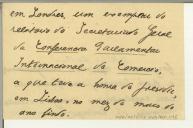 em Londres, um exemplar do
relatorio do Secretariado Geral
da Conferencia Parlamentar
Internacional do Comercio,
a que tive a honra de presidir,
em Lisboa, no mez de maio do
ano findo.